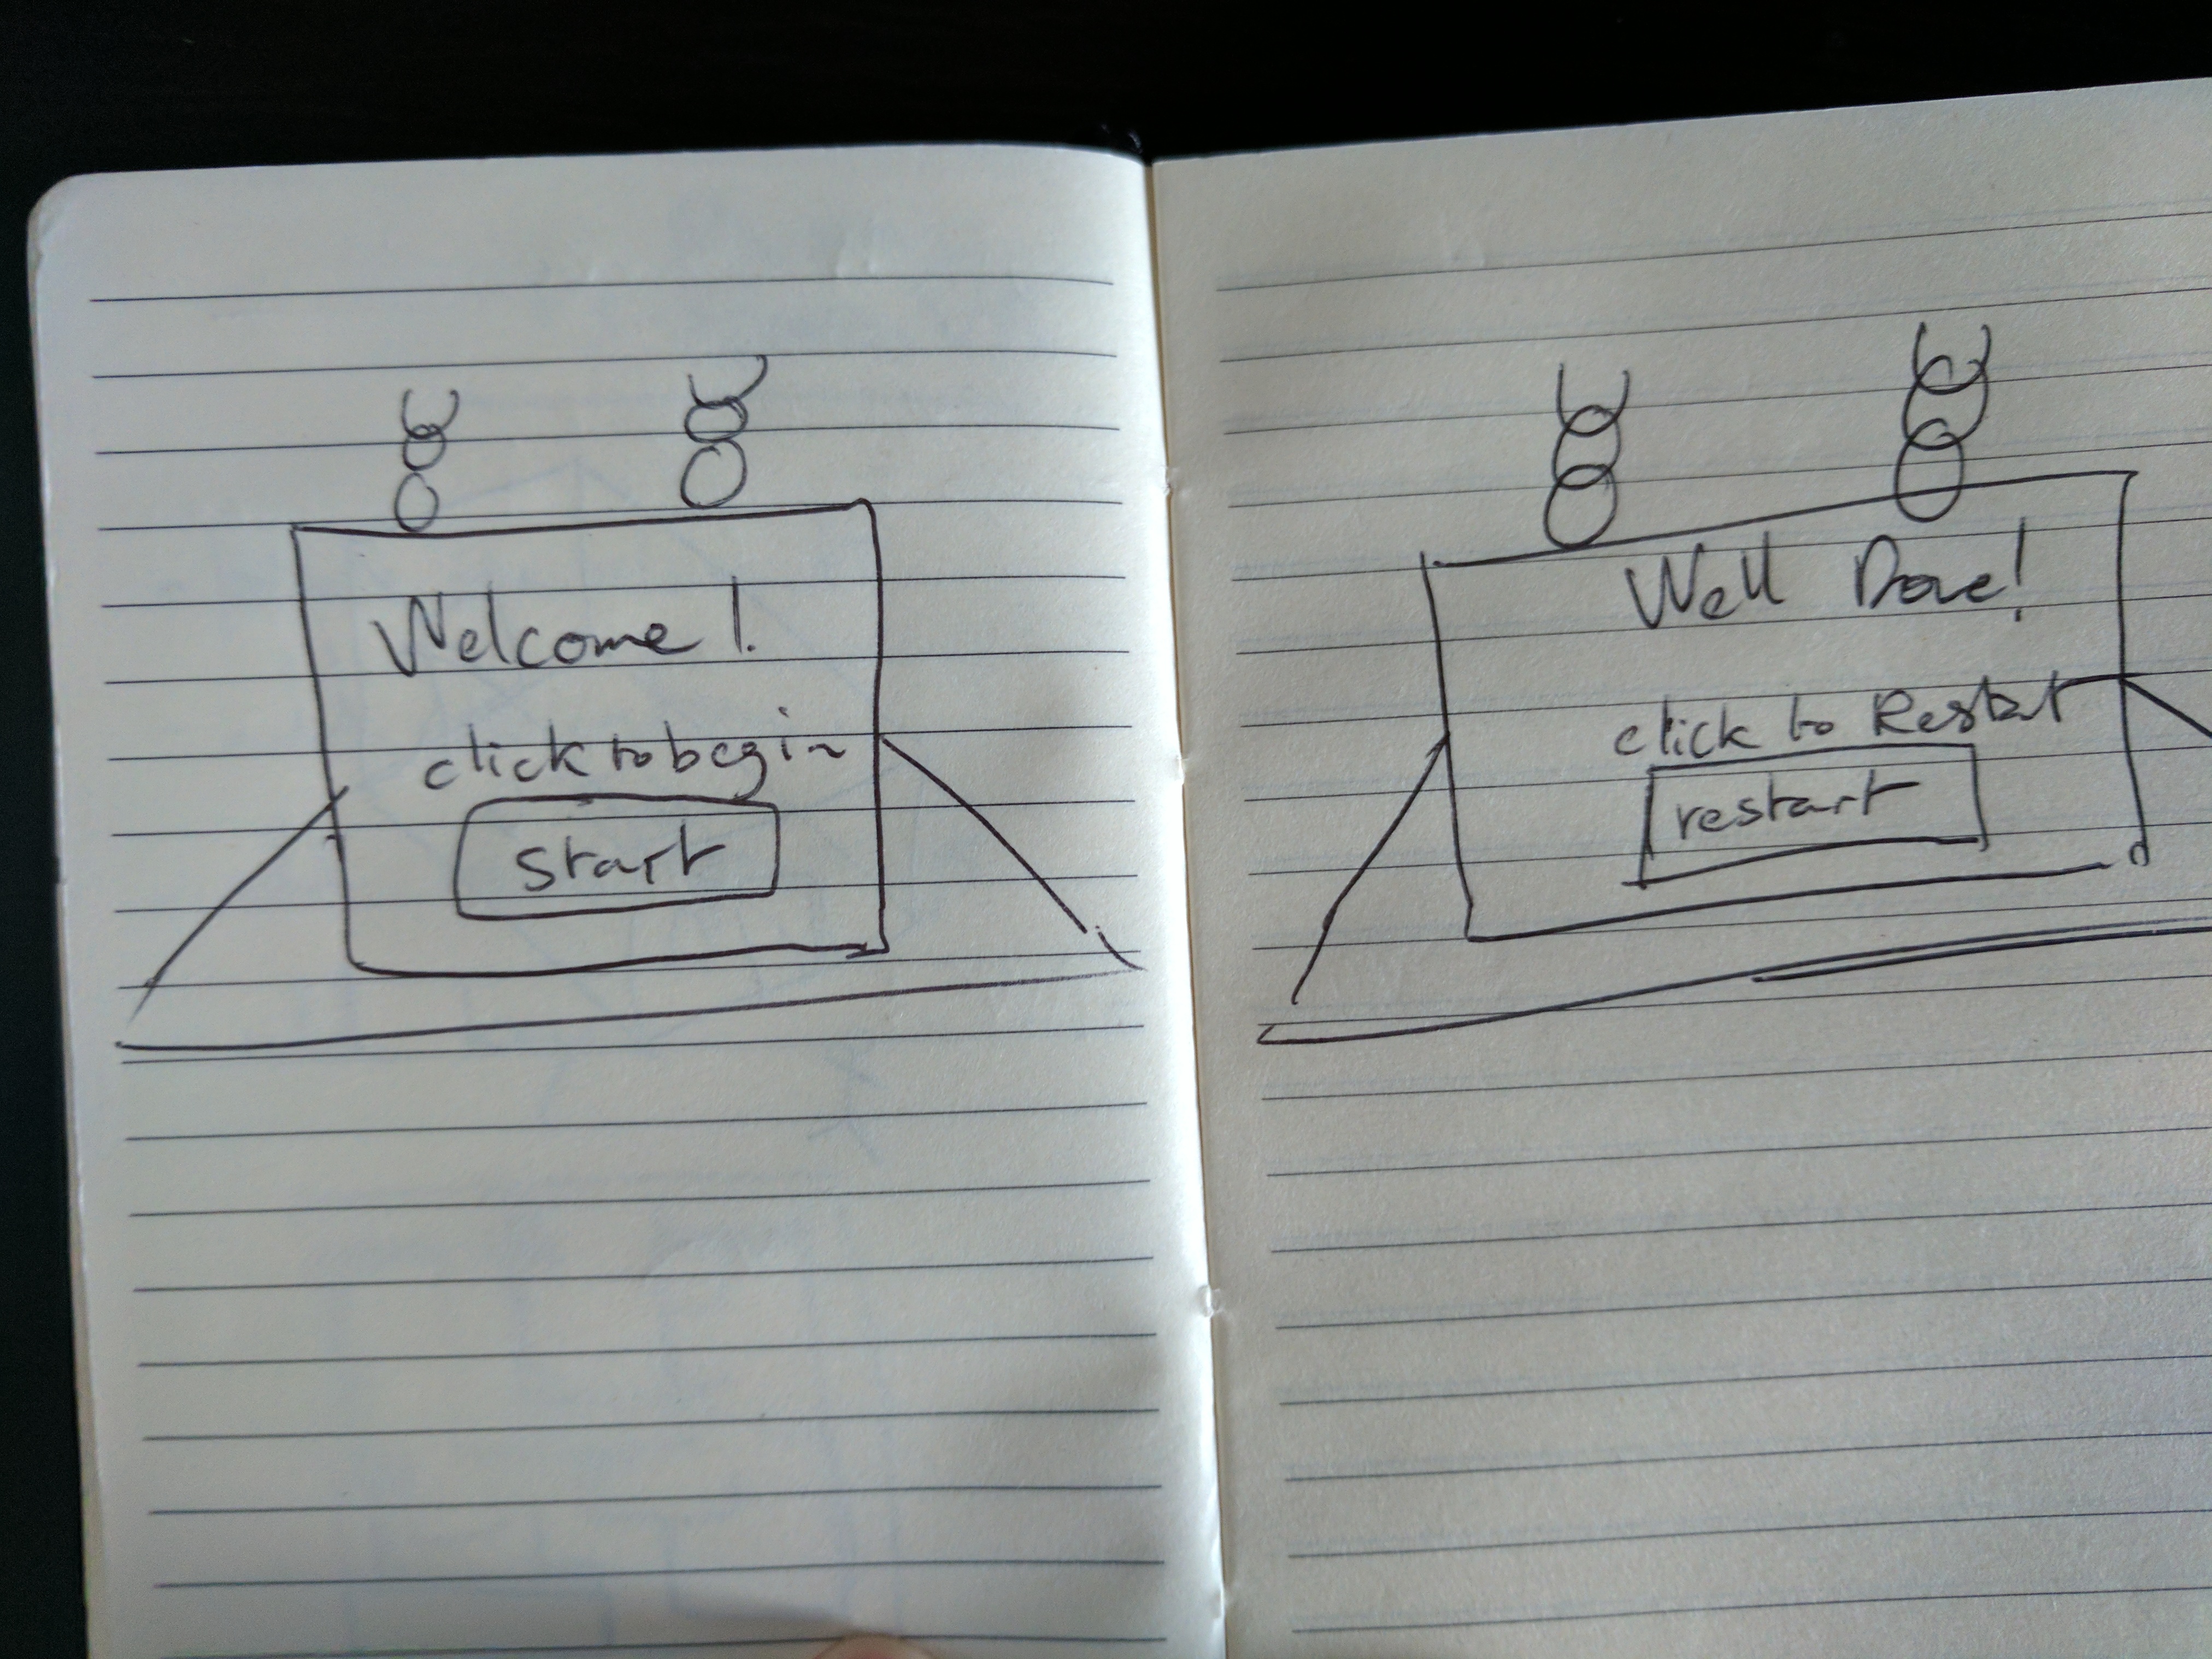 Welcome!
click to begin
start
Well Done!
click to Restart
restart